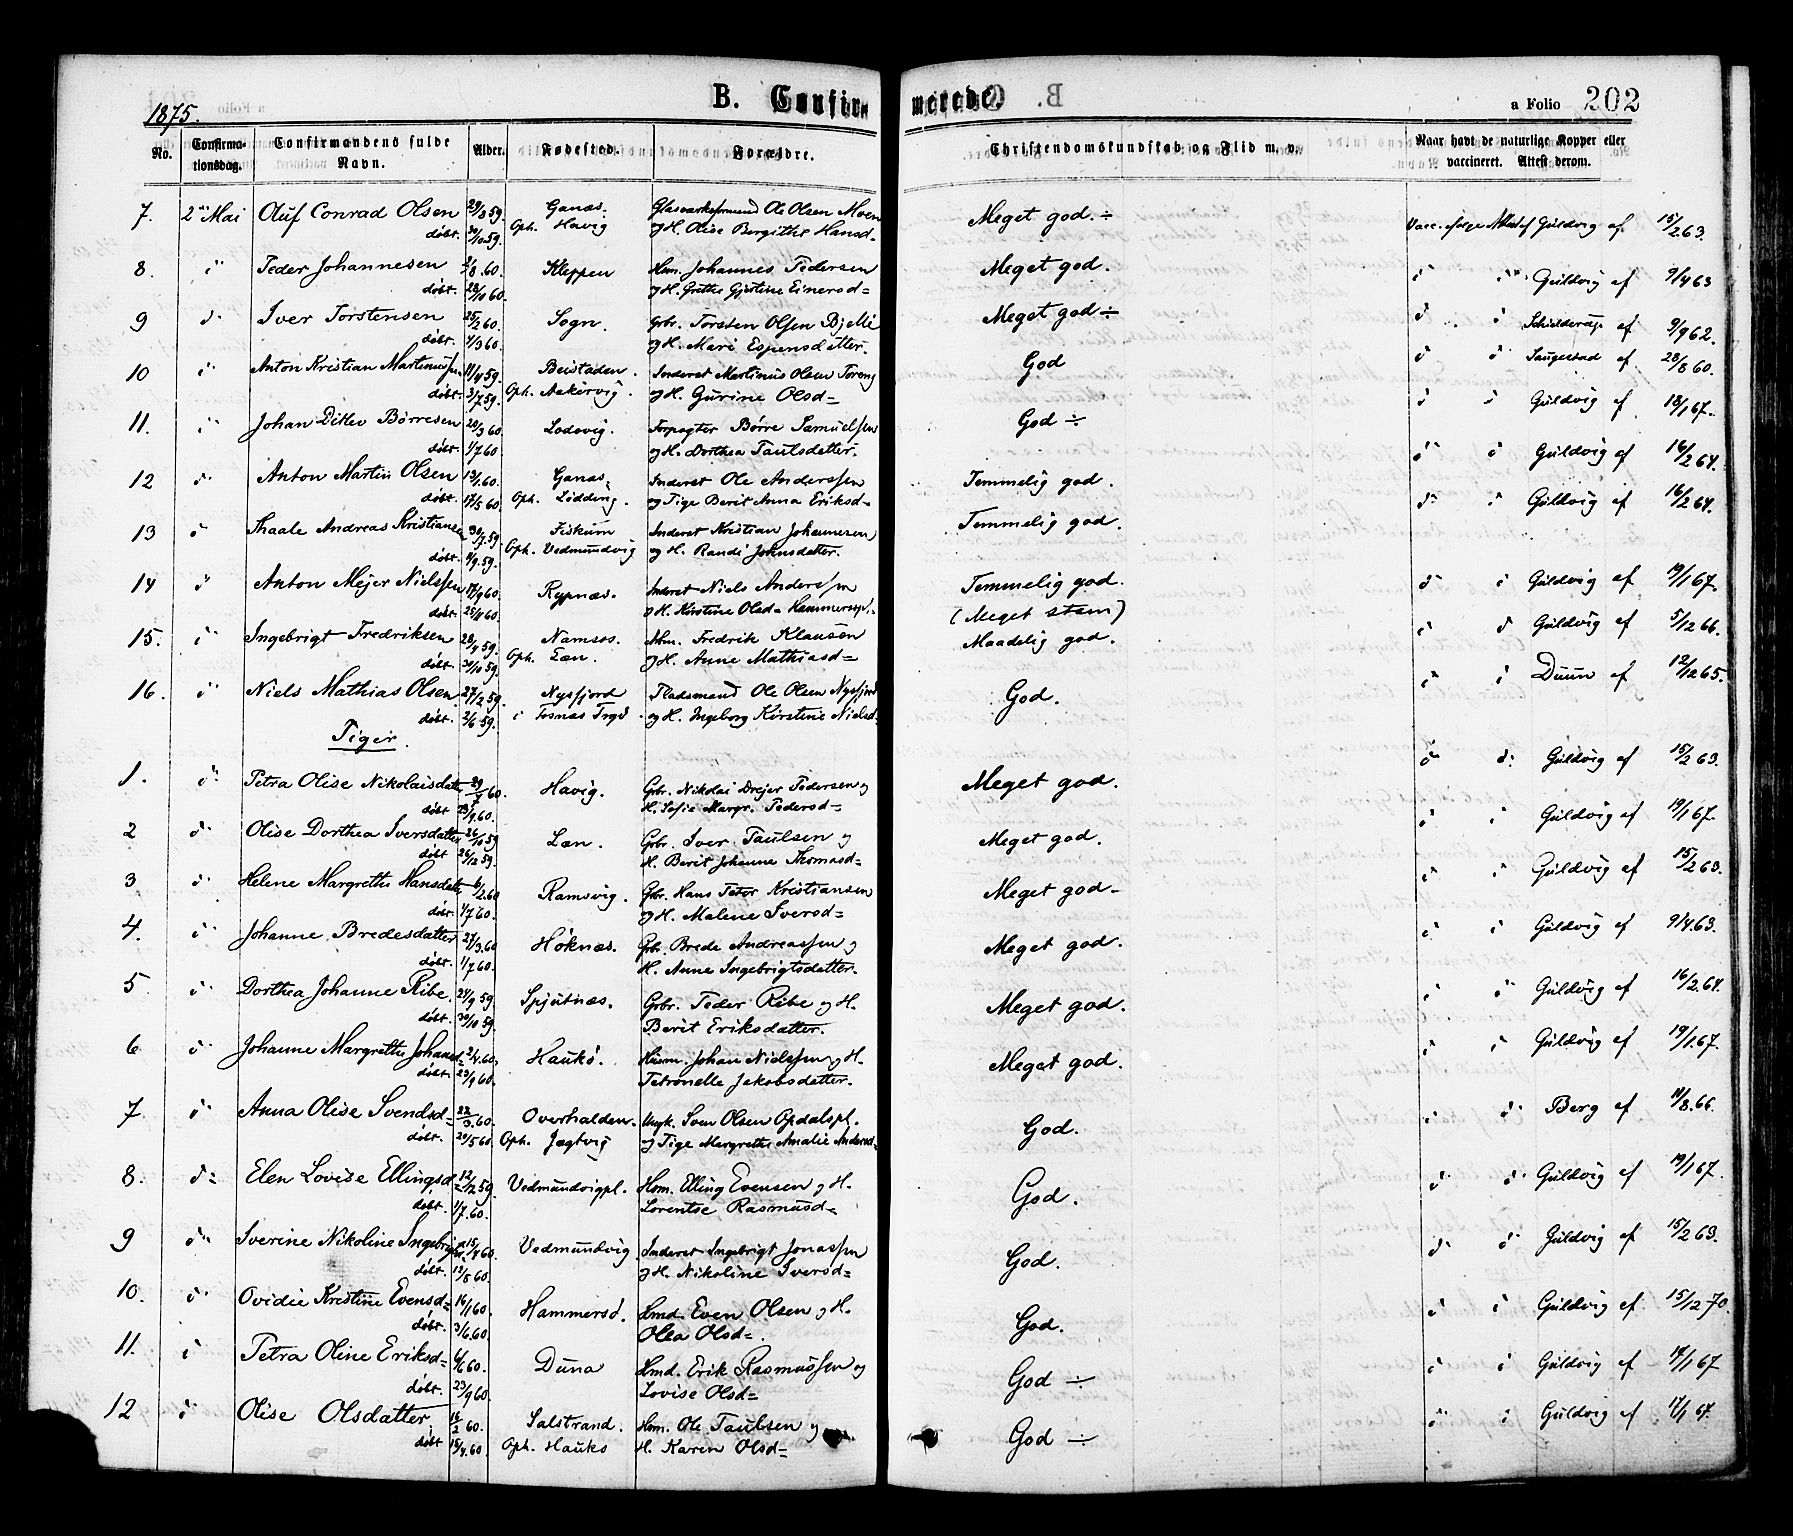 1875.
B. Confirmerede.
a Folio 202
No. Confirmationsdag. Confirmandens fulde Navn. Alder. Fødested. Forældre. Christendomskundskab og Flid m. v. Naar havt de naturlige Kopper eller vaccineret. Attest derom.
7. 2den Mai Oluf Conrad Olsen 29/8 59. Ganæs. Glasværksformand Ole Olsen Moen Meget god ÷ Vacc. ifølge Attest af Guldvig af 15/2 63.
døbt. 30/10 59. Oph. Havig og H. Olise Bergithe Hansd=
8. d Peder Johannesen 2/8 60. Kleppen Hsm. Johannes Pedersen Meget god. d d Guldvig af 9/4 63
døbt. 28/10 60. og H. Grethe Gjertine Einersd=
9 d. Iver Torstensen 25/2 60. Sogn. Gbr. Torsten Olsen Bjelle Meget god ÷ d d af 9/9 62.
døbt. 1/3 60. og H. Mari Espensdatter.
10 d Anton Kristian Martinussen 11/4 59. Beistaden. Inderst Martinus Olsen God d d Saugestad af 28/8 60.
døbt. 3/7 59. Oph. Aakervig. og H. Gurine Olsd=
11. d Johan Ditlev Børresen 28/3 60. Lodovig. Forpagter Børre Samuelsen God ÷ d d Guldvig af 18/1 67.
døbt. 1/7 60. og H. Dorthea Paulsdatter.
12 d Anton Martin Olsen 13/1 60. Ganæs Inderst Ole Anderssen Temmelig god. d d Guldvig af 16/2 64.
døbt. 17/5 60. Oph. Lidding. og Pige Berit Anna Eriksd=
13 d Thaale Andreas Kristiansen 30/7 59. Fiskum Inderst Kristian Johannesen Temmelig god. d d Guldvig af 16/2 64.
døbt. 11/9 59. Oph. Vedmundvig og H. Randi Johnsdatter.
14 d Anton Mejer Nielssen 17/9 60. Rypnæs. Inderst Niels Anderssen Temmelig god. d d Guldvig af 19/1 67.
døbt. 25/11 60. og H. Kirstine Olsd= Hammersøpl. (Meget stam)
15. d Ingebrigt Fredriksen 28/4 59. Namsos. Hsm. Fredrik Klausen Maadelig god. d d Guldvig af 5/12 66.
døbt. 30/10 59. Oph. Læn. og H. Anne Mathiasd=
16. d Niels Mathias Olsen 27/2 59. Nysfjord Pladsmand Ole Olsen Nysfjord God. d d Duun af 12/12 65.
døbt. 2/6 59. i Fosnæs Prgd. og H. Ingeborg Kirstine Nielsd.
Piger.
1. d Petra Olise Nikolaisdatter 29/5 60. Havig. Gbr. Nikolai Drejer Pedersen og Meget god. d d. Guldvig af 15/2 63.
døbt 23/9 60. H. Sofie Margr. Pedersd=
2 d Olise Dorthea Iversdatter 26/10 59 Læn. Gbr. Iver Paulsen og Meget god. d d Guldvig af 19/1 67.
døbt 26/12 59. H. Berit Johanne Thomasd=
3 d Helene Margrethe Hansdatter 6/2 60 Ramsvig. Gbr. Hans Peter Kristiansen Meget god- d d Guldvig af 15/2 63.
døbt. 1/7 60. og H. Malene Iversd=
4. d Johanne Bredesdatter 27/3 60 Høknæs. Gbr. Brede Andreassen og Meget god. d d Guldvig af 9/4 63.
døbt. 1/7 60. H. Anne Ingebrigtsdatter.
5 d Dorthea Johanne Ribe. 24/9 59. Spjutnæs. Gbr. Peder Ribe og H. Meget god. d d Guldvig af 16/2 64.
døbt. 30/10 59. Berit Eriksdatter.
6 d Johanne Margrethe Johansd= 2/4 60. Haukø. Husm. Johan Nielssen og H. Meget god. d d Guldvig af 19/1 67.
døbt. 23/9 60. Petronelle Jakobsdatter.
7. d Anna Olise Svendsd= 22/3 60. Overhalden. Ungk. Sven Olsen Opdalspl. God. d d Berg af 11/8 66.
døbt. 20/5 60. Oph. Jægtvig og Pige Margrethe Amalie Andersd=
8. d= Elen Lovise Ellingsd= 12/12 59. Vedmundvigpl. Hsm. Elling Evensen og H. God. d d Guldvig af 19/1 67.
døbt. 1/7 60. Lorentse Rasmusd=
9 d Iverine Nikoline Ingebrigtsd. 15/4 60. Vedmundvig Inderst Ingebrigt Jonassen God. d d Guldvig af 15/2 63.
døbt. 13/8 60. og H. Nikoline Iversd=
10. d Ovidie Kristine Evensd= 16/1 60. Hammersø. Hmd. Even Olsen og H. God. d d Guldvig af 15/12 70.
døbt. 3/6 60. Olea Olsd=.
11. d Petra Oline Eriksd= 6/6 60. Duna Hmd. Erik Rasmussen og God ÷ d d Guldvig af 17/1 67
døbt. 23/9 60. Lovise Olsd=
12 d Olise Olsdatter. 16/2 60. Salstrand. Hsm. Ole Paulsen og God ÷ d d Guldvig af 17/1 67.
døbt 15/4 60. Oph. Hauko H. Karen Olsd=